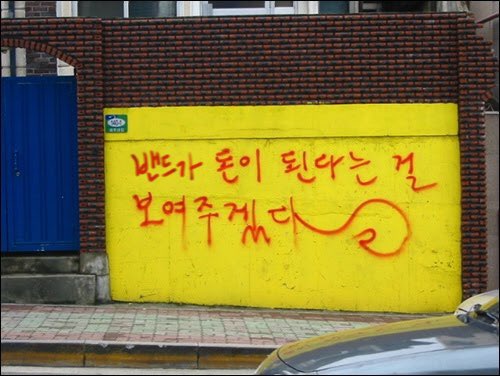 밴드가 돈이 된다는 걸
보여주겠다